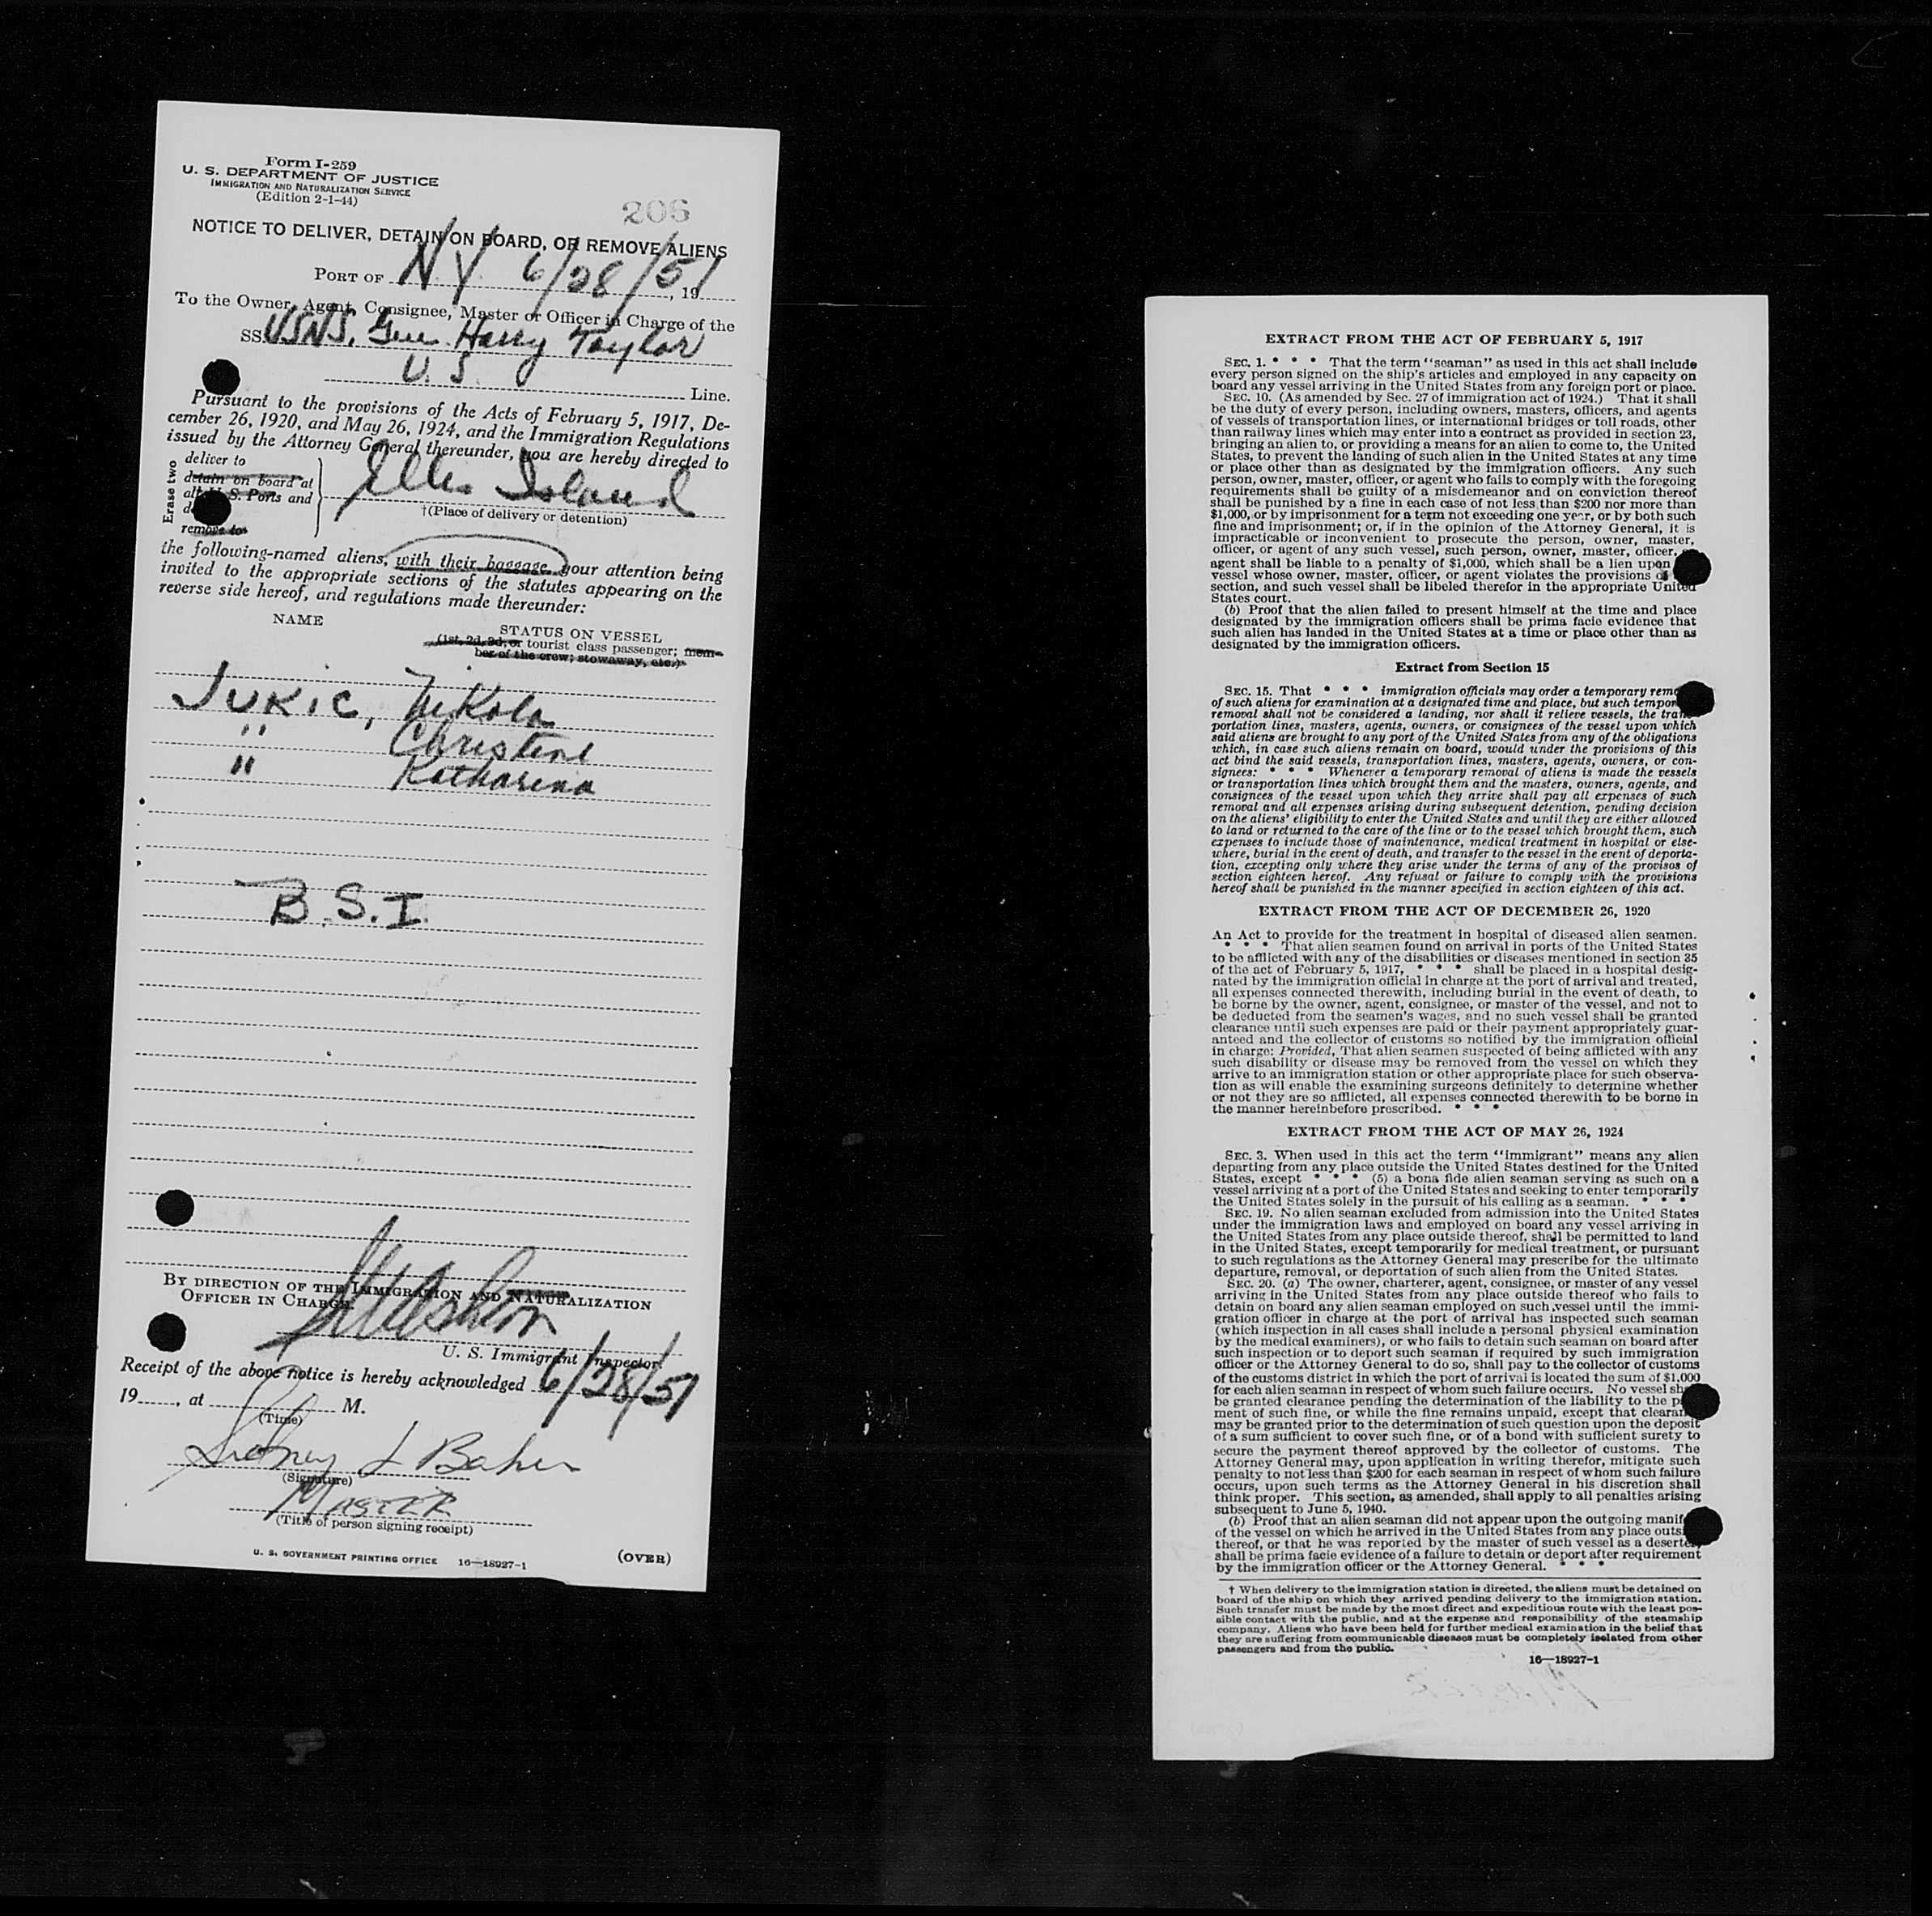 Form I-259
U. S. DEPARTMENT OF JUSTICE
IMMIGRATION AND NATURALIZATION SERVICE
(Edition 2-1-44)
206
NOTICE TO DELIVER, DETAIN ON BOARD, OR REMOVE ALIENS
PORT OF NY 6/28/51, 19
To the Owner, Agent, Consignee, Master or Officer in Charge of the
SS USNS. Gen Harry Taylor
U. S. Line.
Pursuant to the provisions of the Acts of February 5, 1917, De-
cember 26, 1920, and May 26, 1924, and the Immigration Regulations
issued by the Attorney General thereunder, you are hereby directed to
Erase two
deliver to
detain on board at
all U. S. Ports and
remove to
Ellis Island
†(Place of delivery or detention)
the following-named aliens, with their baggage, your attention being
invited to the appropriate sections of the statutes appearing on the
reverse side hereof, and regulations made thereunder:
NAME
STATUS ON VESSEL
(1st, 2d, 3d, or tourist class passenger; mem-
ber of the crew; stowaway, etc.)
JUKIC, Nikola
" Christine
" Katharina
B.S.I.
BY DIRECTION OF THE IMMIGRATION AND NATURALIZATION
OFFICER IN CHARGE.
U. S. Immigrant Inspector.
Receipt of the above notice is hereby acknowledged 6/28/51
19, at M.
(Time)
Sidney L Baker
(Signature)
MASTER
(Title of person signing receipt)
U. S. GOVERNMENT PRINTING OFFICE 16—18927-1
(OVER)
EXTRACT FROM THE ACT OF FEBRUARY 5, 1917
SEC. 1. * * * That the term "seaman" as used in this act shall include
every person signed on the ship's articles and employed in any capacity on
board any vessel arriving in the United States from any foreign port or place.
SEC. 10. (As amended by Sec. 27 of immigration act of 1924.) That it shall
be the duty of every person, including owners, masters, officers, and agents
of vessels of transportation lines, or international bridges or toll roads, other
than railway lines which may enter into a contract as provided in section 23,
bringing an alien to, or providing a means for an alien to come to, the United
States, to prevent the landing of such alien in the United States at any time
or place other than as designated by the immigration officers. Any such
person, owner, master, officer, or agent who fails to comply with the foregoing
requirements shall be guilty of a misdemeanor and on conviction thereof
shall be punished by a fine in each case of not less than $200 nor more than
$1,000, or by imprisonment for a term not exceeding one year, or by both such
fine and imprisonment; or, if in the opinion of the Attorney General, it is
impracticable or inconvenient to prosecute the person, owner, master,
officer, or agent of any such vessel, such person, owner, master, officer,
agent shall be liable to a penalty of $1,000, which shall be a lien upon
vessel whose owner, master, officer, or agent violates the provisions of
section, and such vessel shall be libeled therefor in the appropriate United
States court.
(b) Proof that the alien failed to present himself at the time and place
designated by the immigration officers shall be prima facie evidence that
such alien has landed in the United States at a time or place other than as
designated by the immigration officers.
Extract from Section 15
SEC. 15. That * * * immigration officials may order a temporary remo
of such aliens for examination at a designated time and place, but such tempor
removal shall not be considered a landing, nor shall it relieve vessels, the trans-
portation lines, masters, agents, owners, or consignees of the vessel upon which
said aliens are brought to any port of the United States from any of the obligations
which, in case such aliens remain on board, would under the provisions of this
act bind the said vessels, transportation lines, masters, agents, owners, or con-
signees: * * * Whenever a temporary removal of aliens is made the vessels
or transportation lines which brought them and the masters, owners, agents, and
consignees of the vessel upon which they arrive shall pay all expenses of such
removal and all expenses arising during subsequent detention, pending decision
on the aliens' eligibility to enter the United States and until they are either allowed
to land or returned to the care of the line or to the vessel which brought them, such
expenses to include those of maintenance, medical treatment in hospital or else-
where, burial in the event of death, and transfer to the vessel in the event of deporta-
tion, excepting only where they arise under the terms of any of the provisos of
section eighteen hereof. Any refusal or failure to comply with the provisions
hereof shall be punished in the manner specified in section eighteen of this act.
EXTRACT FROM THE ACT OF DECEMBER 26, 1920
An Act to provide for the treatment in hospital of diseased alien seamen.
* * * That alien seamen found on arrival in ports of the United States
to be afflicted with any of the disabilities or diseases mentioned in section 35
of the act of February 5, 1917, * * * shall be placed in a hospital desig-
nated by the immigration official in charge at the port of arrival and treated,
all expenses connected therewith, including burial in the event of death, to
be borne by the owner, agent, consignee, or master of the vessel, and not to
be deducted from the seamen's wages, and no such vessel shall be granted
clearance until such expenses are paid or their payment appropriately guar-
anteed and the collector of customs so notified by the immigration official
in charge: Provided, That alien seamen suspected of being afflicted with any
such disability or disease may be removed from the vessel on which they
arrive to an immigration station or other appropriate place for such observa-
tion as will enable the examining surgeons definitely to determine whether
or not they are so afflicted, all expenses connected therewith to be borne in
the manner hereinbefore prescribed. * * *
EXTRACT FROM THE ACT OF MAY 26, 1924
SEC. 3. When used in this act the term "immigrant" means any alien
departing from any place outside the United States destined for the United
States, except * * * (5) a bona fide alien seaman serving as such on a
vessel arriving at a port of the United States and seeking to enter temporarily
the United States solely in the pursuit of his calling as a seaman. * * *
SEC. 19. No alien seaman excluded from admission into the United States
under the immigration laws and employed on board any vessel arriving in
the United States from any place outside thereof, shall be permitted to land
in the United States, except temporarily for medical treatment, or pursuant
to such regulations as the Attorney General may prescribe for the ultimate
departure, removal, or deportation of such alien from the United States.
SEC. 20. (a) The owner, charterer, agent, consignee, or master of any vessel
arriving in the United States from any place outside thereof who fails to
detain on board any alien seaman employed on such vessel until the immi-
gration officer in charge at the port of arrival has inspected such seaman
(which inspection in all cases shall include a personal physical examination
by the medical examiners), or who fails to detain such seaman on board after
such inspection or to deport such seaman if required by such immigration
officer or the Attorney General to do so, shall pay to the collector of customs
of the customs district in which the port of arrival is located the sum of $1,000
for each alien seaman in respect of whom such failure occurs. No vessel sh
be granted clearance pending the determination of the liability to the p
ment of such fine, or while the fine remains unpaid, except that clearan
may be granted prior to the determination of such question upon the deposit
of a sum sufficient to cover such fine, or of a bond with sufficient surety to
secure the payment thereof approved by the collector of customs. The
Attorney General may, upon application in writing therefor, mitigate such
penalty to not less than $200 for each seaman in respect of whom such failure
occurs, upon such terms as the Attorney General in his discretion shall
think proper. This section, as amended, shall apply to all penalties arising
subsequent to June 5, 1940.
(b) Proof that an alien seaman did not appear upon the outgoing manif
of the vessel on which he arrived in the United States from any place outs
thereof, or that he was reported by the master of such vessel as a deserter,
shall be prima facie evidence of a failure to detain or deport after requirement
by the immigration officer or the Attorney General. * * *
† When delivery to the immigration station is directed, the aliens must be detained on
board of the ship on which they arrived pending delivery to the immigration station.
Such transfer must be made by the most direct and expeditious route with the least pos-
sible contact with the public, and at the expense and responsibility of the steamship
company. Aliens who have been held for further medical examination in the belief that
they are suffering from communicable diseases must be completely isolated from other
passengers and from the public.
16—18927-1